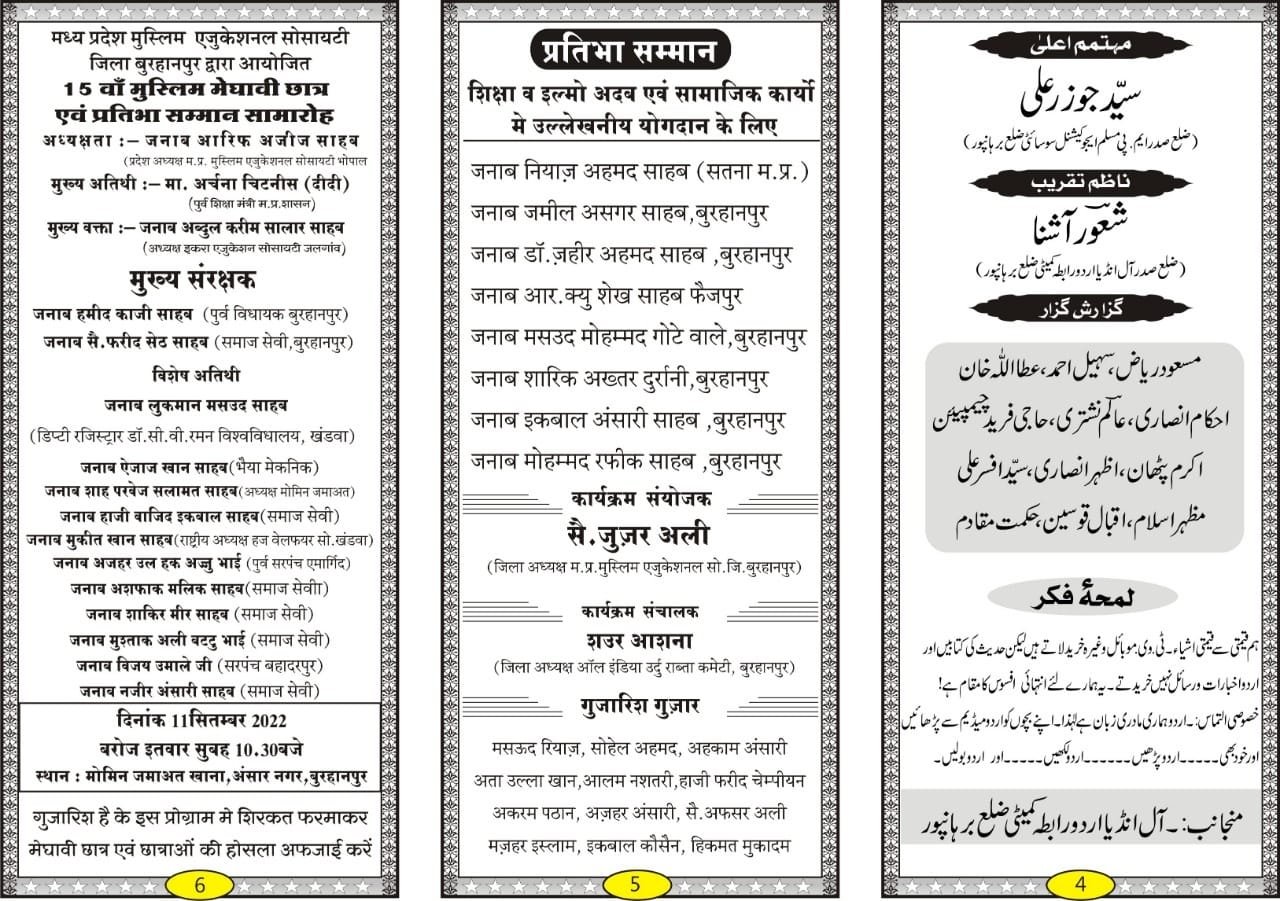 मध्य प्रदेश मुस्लिम एजुकेशनल सोसायटी
जिला बुरहानपुर द्वारा आयोजित
15 वाँ मुस्लिम मेघावी छात्र
एवं प्रतिभा सम्मान सामारोह
अध्यक्षता :– जनाब आरिफ अजीज साहब
(प्रदेश अध्यक्ष म.प्र. मुस्लिम एजुकेशनल सोसायटी भोपाल
मुख्य अतिथी :– मा. अर्चना चिटनीस (दीदी)
(पुर्व शिक्षा मंत्री म.प्र.शासन)
मुख्य वक्ता :– जनाब अब्दुल करीम सालार साहब
(अध्यक्ष इकरा एजुकेशन सोसायटी जलगांव)
मुख्य संरक्षक
जनाब हमीद काजी साहब (पुर्व विधायक बुरहानपुर)
जनाब सै.फरीद सेठ साहब (समाज सेवी,बुरहानपुर)
विशेष अतिथी
जनाब लुकमान मसउद साहब
(डिप्टी रजिस्ट्रार डॉ.सी.वी.रमन विश्वविधालय, खंडवा)
जनाब ऐजाज खान साहब(भैया मेकनिक)
जनाब शाह परवेज सलामत साहब(अध्यक्ष मोमिन जमाअत)
जनाब हाजी वाजिद इकबाल साहब(समाज सेवी)
जनाब मुकीत खान साहब(राष्ट्रीय अध्यक्ष हज वेलफयर सो.खंडवा)
जनाब अजहर उल हक अज्जु भाई (पुर्व सरपंच एमागिर्द)
जनाब अशफाक मलिक साहब(समाज सेवीा)
जनाब शाकिर मीर साहब (समाज सेवी)
जनाब मुश्ताक अली बटटु भाई (समाज सेवी)
जनाब विजय उमाले जी (सरपंच बहादरपुर)
जनाब नजीर अंसारी साहब (समाज सेवी)
दिनांक 11सितम्बर 2022
बरोज इतवार सुबह 10.30बजे
स्थान : मोमिन जमाअत खाना,अंसार नगर,बुरहानपुर
गुजारिश है के इस प्रोग्राम मे शिरकत फरमाकर
मेघावी छात्र एवं छात्राओं की होसला अफजाई करें
6
प्रतिभा सम्मान
शिक्षा व इल्मो अदब एवं सामाजिक कार्यो
मे उल्लेखनीय योगदान के लिए
जनाब नियाज़ अहमद साहब (सतना म.प्र.)
जनाब जमील असगर साहब,बुरहानपुर
जनाब डॉ.ज़हीर अहमद साहब ,बुरहानपुर
जनाब आर.क्यु शेख साहब फैजपुर
जनाब मसउद मोहम्मद गोटे वाले,बुरहानपुर
जनाब शारिक अख्तर दुर्रानी,बुरहानपुर
जनाब इकबाल अंसारी साहब ,बुरहानपुर
जनाब मोहम्मद रफीक साहब ,बुरहानपुर
कार्यक्रम संयोजक
सै.जुज़र अली
(जिला अध्यक्ष म.प्र.मुस्लिम एजुकेशनल सो.जि.बुरहानपुर)
कार्यक्रम संचालक
शउर आशना
(जिला अध्यक्ष ऑल इंडिया उर्दु राब्ता कमेटी, बुरहानपुर)
गुजारिश गुज़ार
मसऊद रियाज़, सोहेल अहमद, अहकाम अंसारी
अता उल्ला खान,आलम नशतरी,हाजी फरीद चेम्पीयन
अकरम पठान, अज़हर अंसारी, सै.अफसर अली
मज़हर इस्लाम, इकबाल कौसैन, हिकमत मुकादम
5
مہتمم اعلیٰ
سیّد جوزر علی
(ضلع صدر ایم. پی مسلم ایجوکیشنل سوسائٹی ضلع برہانپور)
ناظم تقریب
شعور آشنا
(ضلع صدر آل انڈیا اردو رابطہ کمیٹی ضلع برہانپور)
گزارش گزار
مسعود ریاض، سہیل احمد، عطا اللہ خان
احکام انصاری، عالم نشتری، حاجی فرید چیمپیئن
اکرم پٹھان، اظہر انصاری، سیّد افسر علی
مظہر اسلام، اقبال قوسین، حکمت مقادم
لمحۂ فکر
ہم قیمتی سے قیمتی اشیاء۔ ٹی. وی. موبائل وغیرہ خرید لاتے ہیں لیکن حدیث کی کتابیں اور
اردو اخبارات و رسائل نہیں خریدتے۔ یہ ہمارے لئے انتہائی افسوس کا مقام ہے!
خصوصی التماس:۔ اردو ہماری مادری زبان ہے لہٰذا۔ اپنے بچوں کو اردو میڈیم سے پڑھائیں
اور خود بھی۔۔۔۔۔ اردو پڑھیں۔۔۔۔۔۔ اردو لکھیں۔۔۔۔۔ اور اردو بولیں۔
منجانب:۔ آل انڈیا اردو رابطہ کمیٹی ضلع برہانپور
4